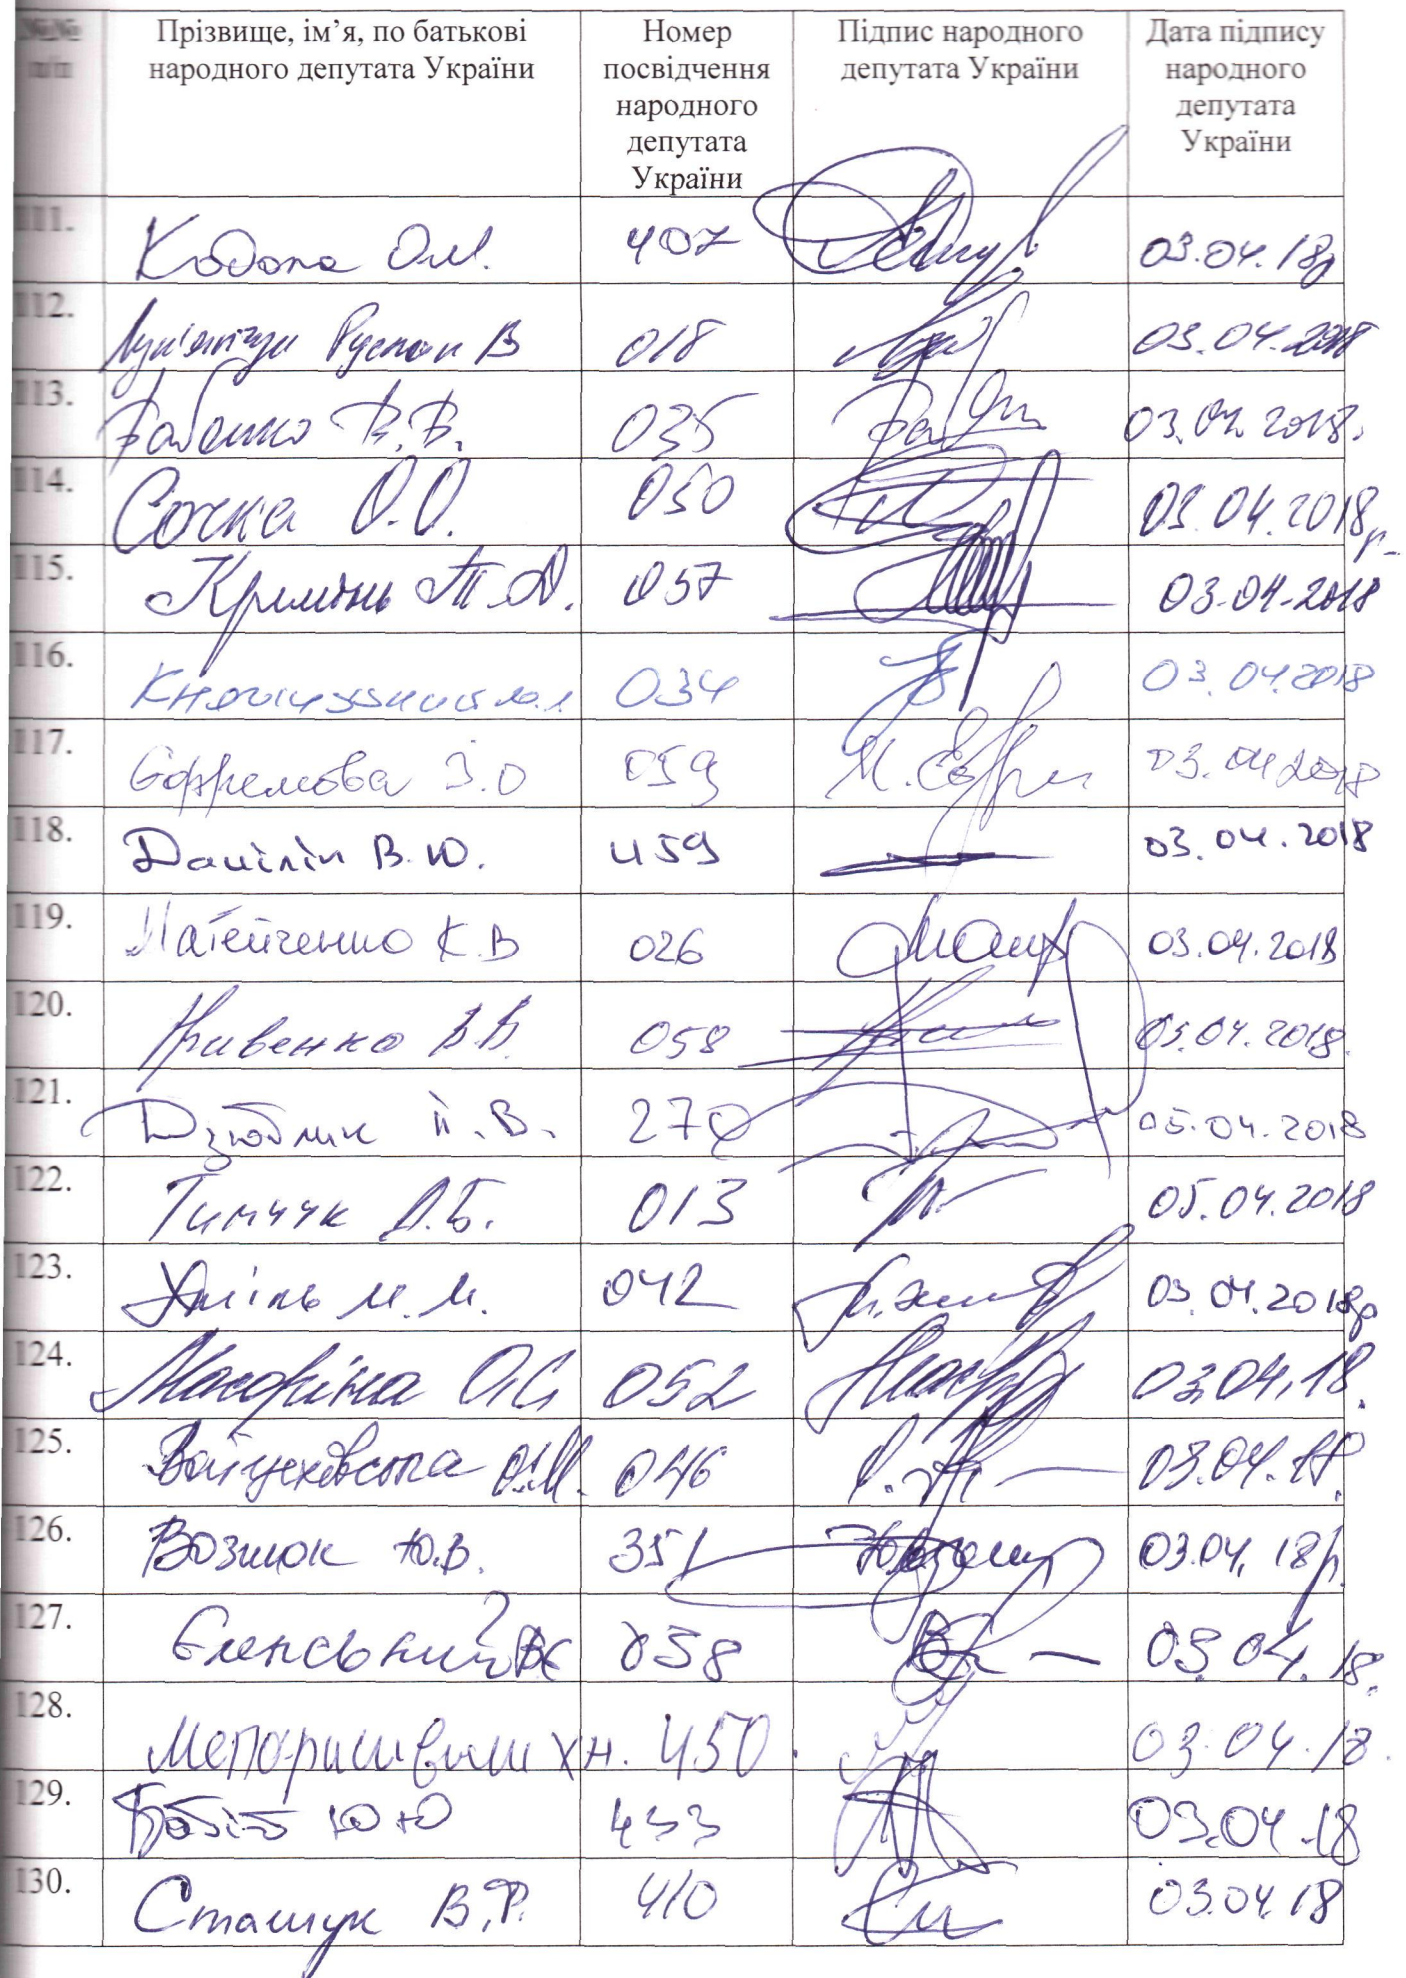 №№ Прізвище, ім’я, по батькові Номер Підпис народного Дата підпису
п/п народного депутата України посвідчення депутата України народного
народного депутата
депутата України
України
111. Кодола О.М. 407 03.04.18р
112. Лук'янчук Руслан В 018 03.04.2018
113. Бабенко В.В. 035 03.04.2018.
114. Сочка О.О. 050 03.04.2018р.
115. Кремінь Т.Д. 057 03.04.2018
116. 034 03.04.2018
117. Єфремова І.О 059 03.04.2018
118. Данілін В.Ю. 459 03.04.2018
119. Матейченко К.В 026 03.04.2018
120. Кривенко В.В. 058 03.04.2018.
121. Дзюблик П.В. 270 05.04.2018
122. Тимчук Д.Б. 013 05.04.2018
123. Хміль М.М. 042 03.04.2018р
124. Масоріна О.С. 052 03.04.18.
125. Войцеховська О.М. 046 03.04.18.
126. Вознюк Ю.В. 351 03.04.18р.
127. Єленський В.Є 038 03.04.18.
128. Мепарішвілі Х.Н. 450 03.04.18.
129. Бабій Ю Ю 433 03.04.18
130. Сташук В.Ф. 410 03.04.18